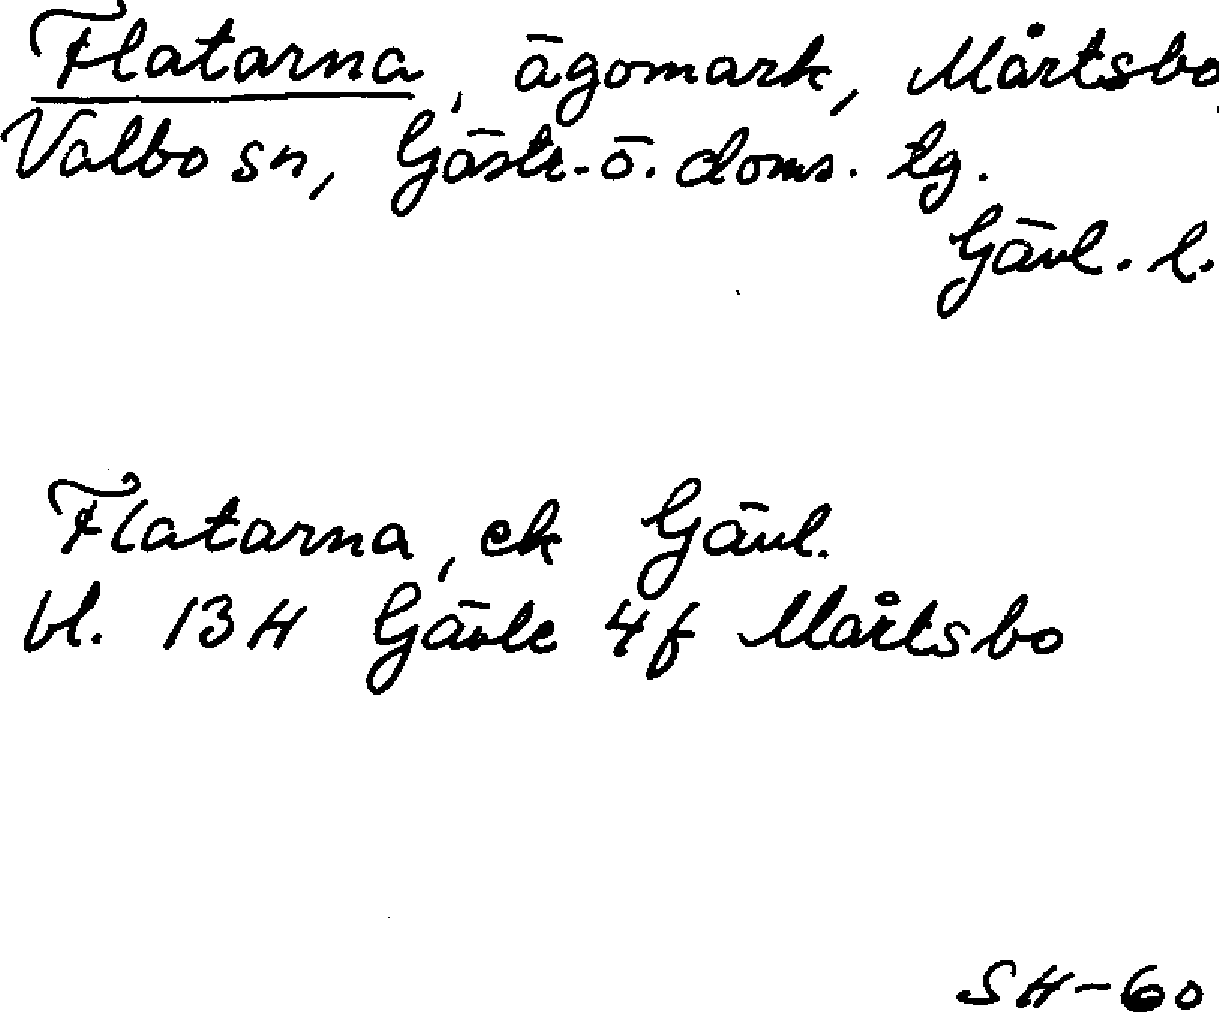 Flatarna, ägomark, Mårtsbo,
Valbo sn, Gästr.-ö. doms. tg.
Gävl. l.
Flatarna, ek Gävl.
bl. 13H Gävle 4f Mårtsbo
SH-60